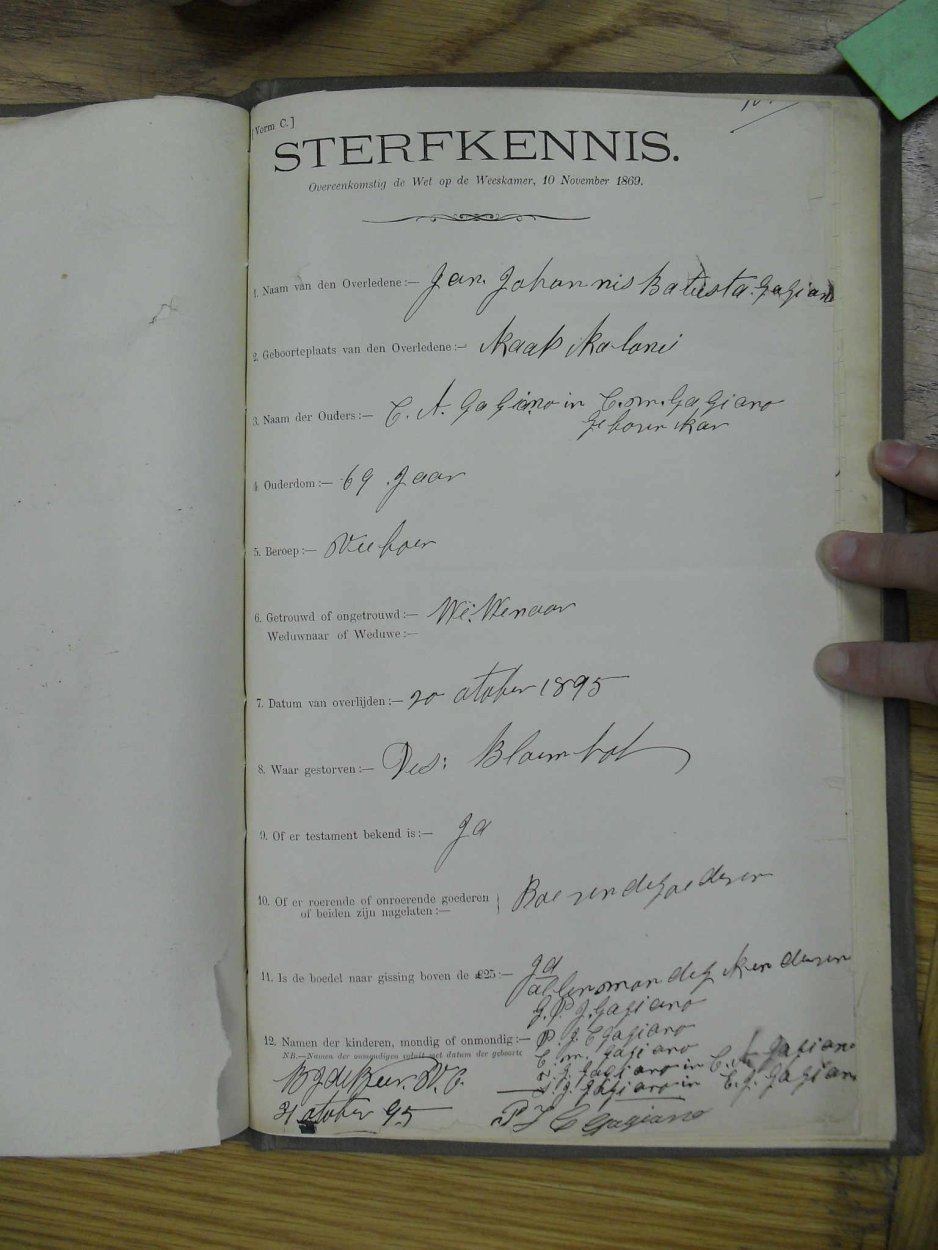 [Vorm C.]
STERFKENNIS.
Overeenkomstig de Wet op de Weeskamer, 10 November 1869.
1. Naam van den Overledene:— Jan Johannis Batista Gagiano
2. Geboorteplaats van den Overledene:— Kaap Kaloni
3. Naam der Ouders:— C. A. Gagiano in C. M. Gagiano
geboren
4. Ouderdom:— 69 Jaar
5. Beroep:— Veeboer
6. Getrouwd of ongetrouwd:— Wewenaar
Weduwnaar of Weduwe:—
7. Datum van overlijden:— 20 otober 1895
8. Waar gestorven:— Des: Bloemhof
9. Of er testament bekend is:— Ja
10. Of er roerende of onroerende goederen
of beiden zijn nagelaten:—
11. Is de boedel naar gissing boven de £25:— Ja
allen mondig kenderen
J. P. J. Gagiano
12. Namen der kinderen, mondig of onmondig:— P. J. C Gagiano
NB.—Namen der onmondigen voluit met datum der geboorte
C. M. Gagiano
J. Gagiano in C. Gagiano
J. Gagiano in C. J. Gagiano
21 otober 95
P J C Gagiano